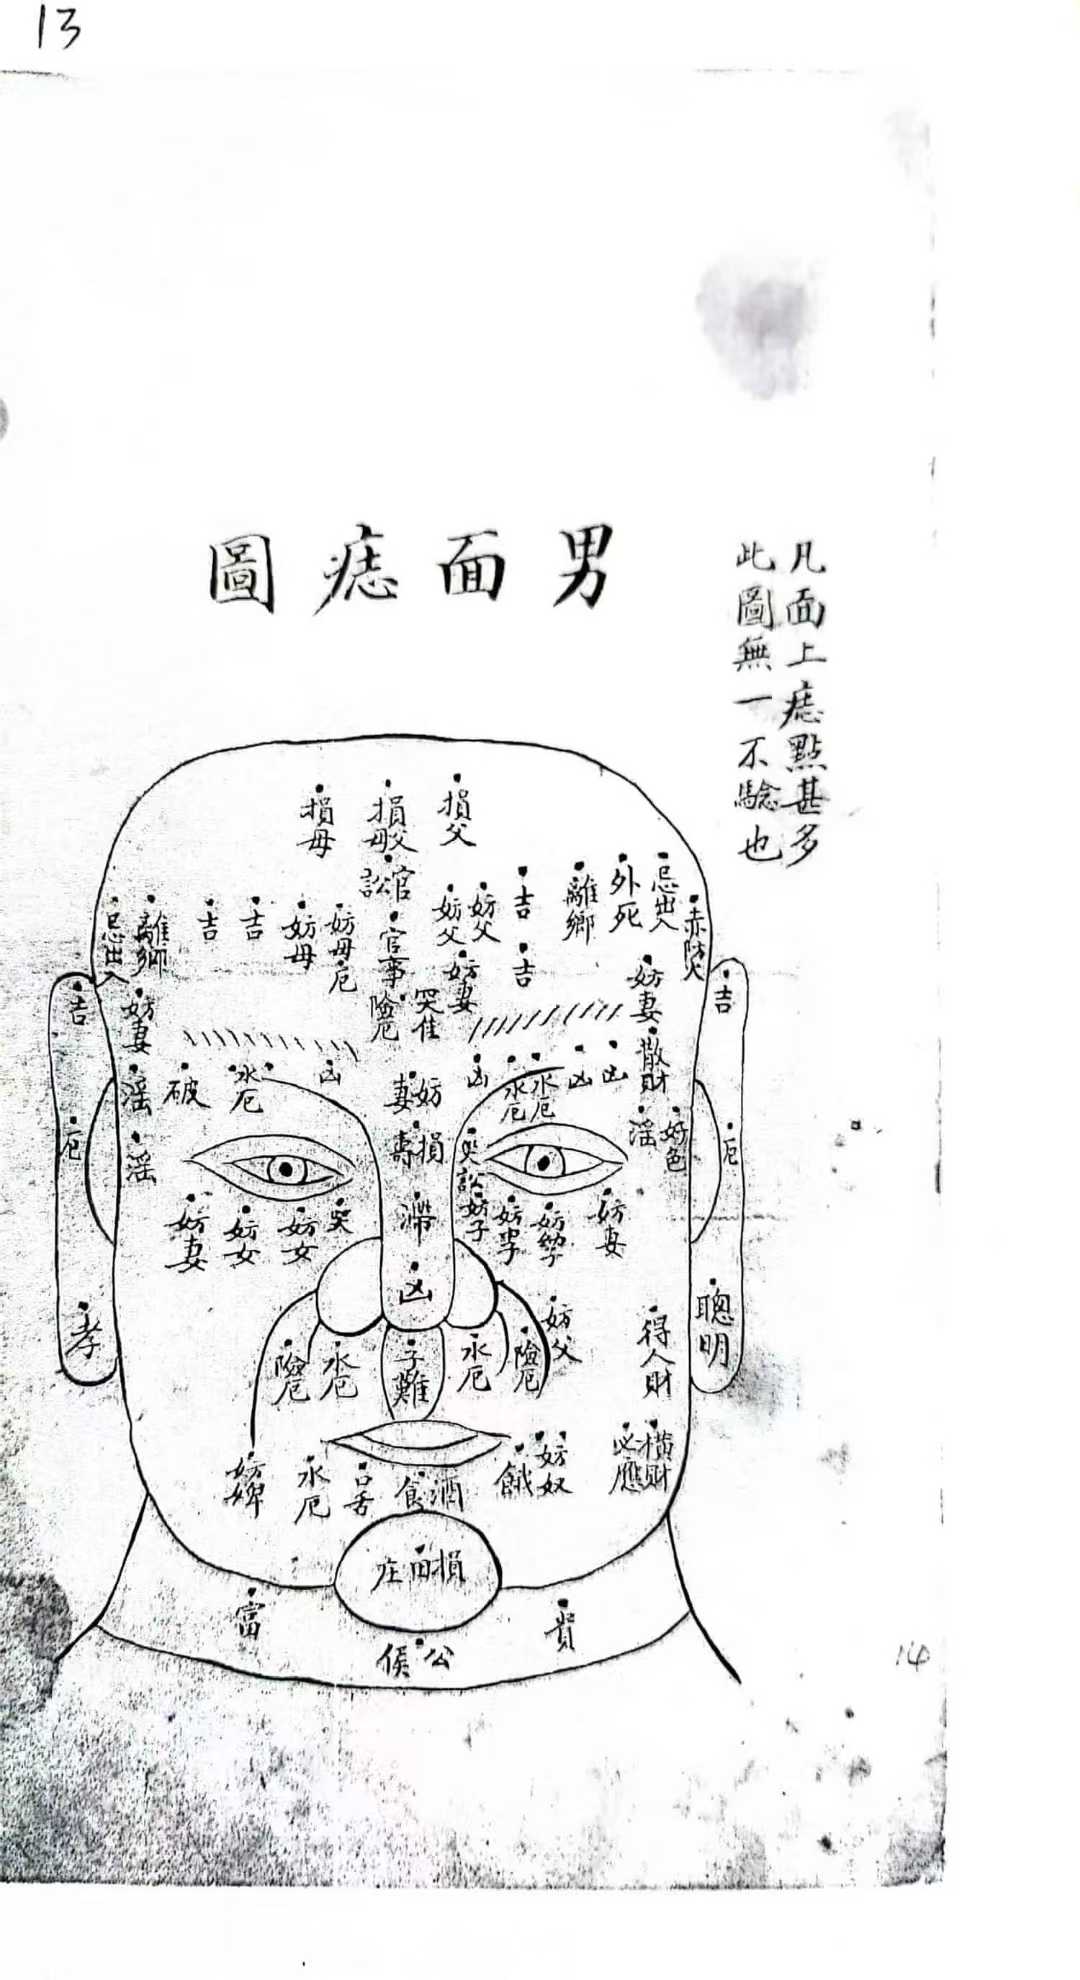 13
凡面上痣點甚多
此圖無一不驗也
男面痣圖
損父
損父母
損母
官訟
忌出入
外死
離鄉
吉
妨父
妨父
官事
險厄
妨母厄
妨母
吉
吉
離鄉
忌出入
赤防火
妨妻
吉
妨妻
哭
妨妻
吉
吉
散財
凶
凶
水厄
水厄
凶
妨妻
凶
水厄
破
淫
好色
淫
厄
損壽
哭訟
淫
厄
妨妻
妨子
滯
哭
妨女
妨女
妨妻
凶
聰明
得人財
妨父
險厄
水厄
子難
水厄
險厄
孝
橫財
必應
妨奴
餓
酒食
口舌
水厄
妨婢
損田庄
貴
公侯
富
14